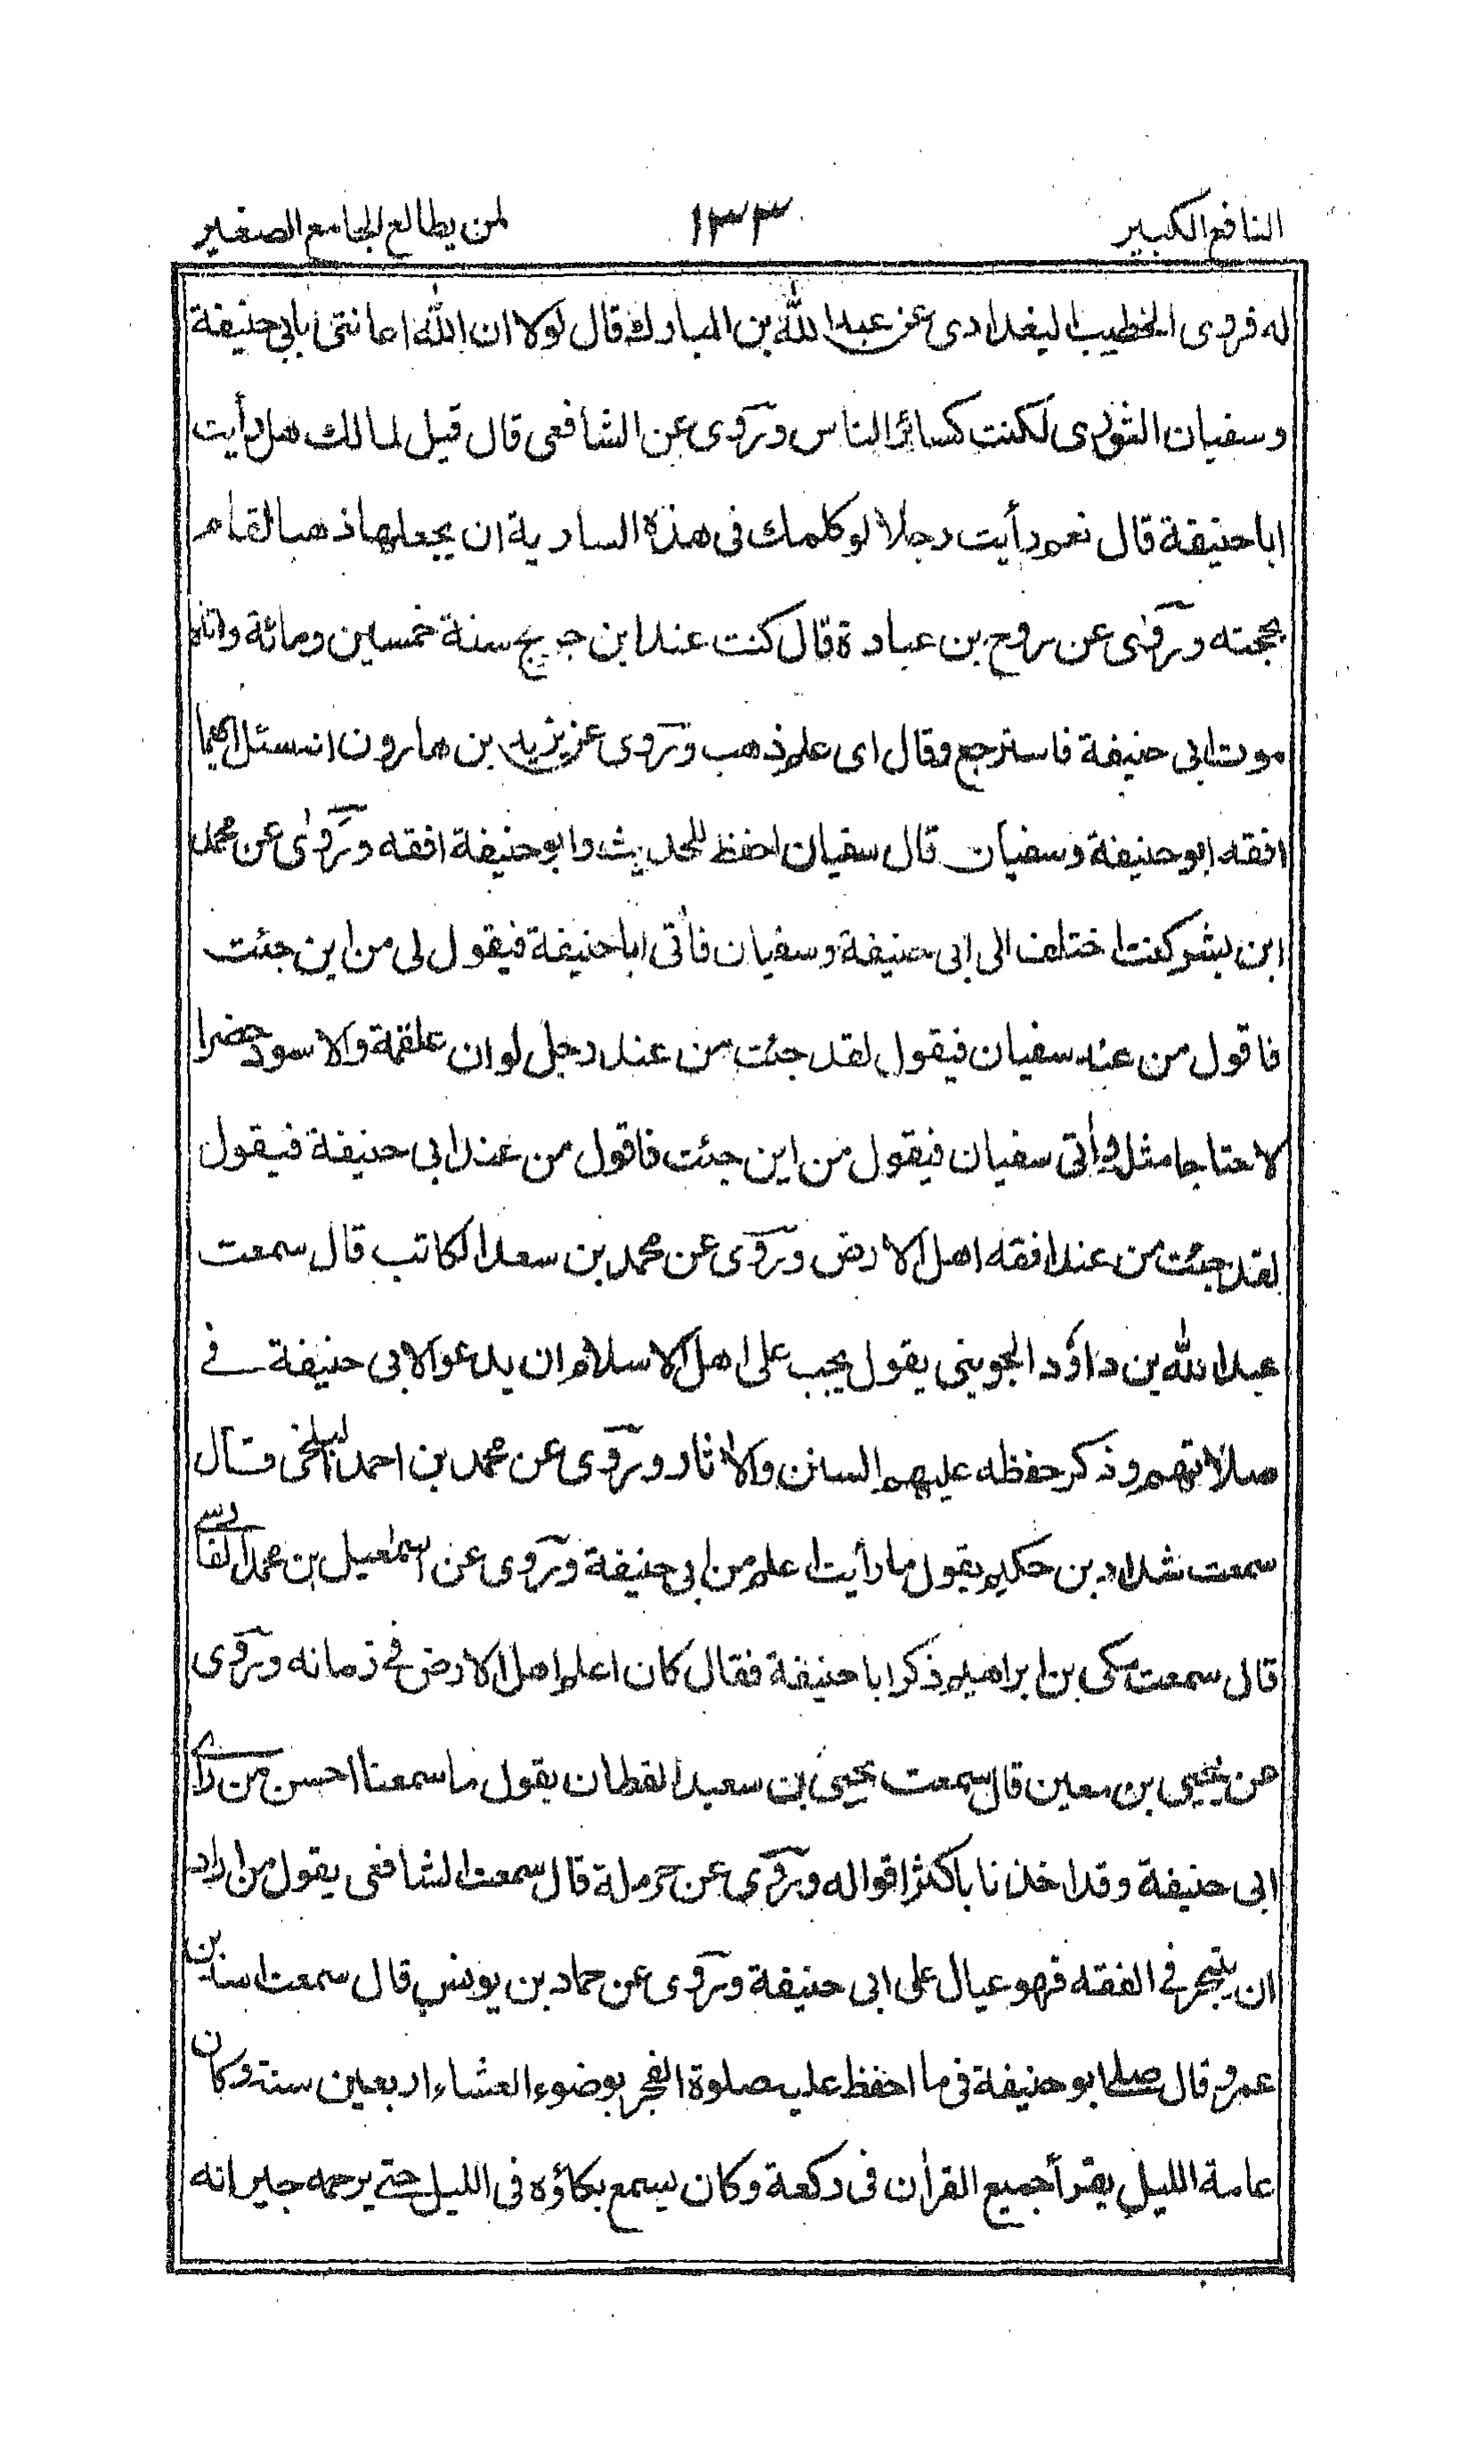 النافع الكبير ١٣٣ لمن يطالع الجامع الصغير
له فروى الخطيب البغدادى عن عبد الله بن المبارك قال لولا ان الله اعانتى بابى حنيفة
وسفيان الثورى لكنت كسائر الناس وروى عن الشافعى قال قيل لمالك هل رأيت
ابا حنيفة قال نعم رأيت رجلا لو كلمك فى هذه السارية ان يجعلها ذهبا لقام
بحجته وروى عن روح بن عبادة قال كنت عند ابن جريج سنة خمسين ومائة واتاه
موت ابى حنيفة فاسترجع وقال اى علم ذهب وروى عن يزيد بن هارون انه سئل ايهما
افقه ابو حنيفة وسفيان قال سفيان احفظ للحديث وابو حنيفة افقه وروى عن محمد
ابن بشر كنت اختلف الى ابى حنيفة وسفيان فأتى ابا حنيفة فيقول لى من اين جئت
فاقول من عند سفيان فيقول لقد جئت من عند رجل لو ان علقمة والاسود حضرا
لاحتاجا مثله وأتى سفيان فيقول من اين جئت فاقول من عند ابى حنيفة فيقول
لقد جئت من عند افقه اهل الارض وروى عن محمد بن سعد الكاتب قال سمعت
عبد الله بن داؤد الجوينى يقول يجب على اهل الاسلام ان يدعوا لابى حنيفة فى
صلاتهم وذكر حفظه عليهم السنن والاثار وروى عن محمد بن احمد البلخى قال
سمعت شداد بن حكيم يقول ما رأيت اعلم من ابى حنيفة وروى عن اسمعيل بن محمد الفارسى
قال سمعت مكى بن ابراهيم ذكر ابا حنيفة فقال كان اعلم اهل الارض فى زمانه وروى
عن يحيى بن معين قال سمعت يحيى بن سعيد القطان يقول ما سمعنا احسن من رأى
ابى حنيفة وقد اخذنا باكثر اقواله وروى عن حرملة قال سمعت الشافعى يقول من اراد
ان يتبحر فى الفقه فهو عيال على ابى حنيفة وروى عن حماد بن يونس قال سمعت اسد بن
عمرو قال صلى ابو حنيفة فى ما احفظ عليه صلوة الفجر بوضوء العشاء اربعين سنة وكان
عامة الليل يقرأ جميع القرأن فى ركعة وكان يسمع بكاؤه فى الليل حتى يرحمه جيرانه